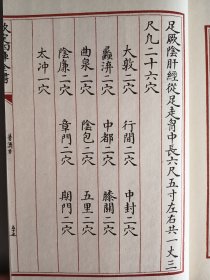 足厥陰肝經從足走胷中長六尺五寸左右共一丈三
尺凡二十六穴
大敦二穴 行間二穴 中封二穴
蠡溝二穴 中都二穴 膝關二穴
曲泉二穴 陰包二穴 五里二穴
陰廉二穴 章門二穴 期門二穴
太冲一穴